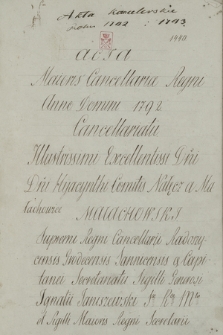 Akta kanclerskie
roku 1792 : 1793
ACTA
Maioris Cancellariae Regni
Anno Domini 1792
Cancellariatu
Illustrissimi Excellentissi Dni
Dni Hyacynthi Comitis Nałęcz a Ma
łachowice
MAŁACHOWSKI
Supremi Regni Cancellarii Radozy
censis Grodecensis a Capi
tanei Secretariatu Sigilli Generosi
Ignatii Janiszewski S. R. M.
et Sigilli Maioris Regni Secretarii